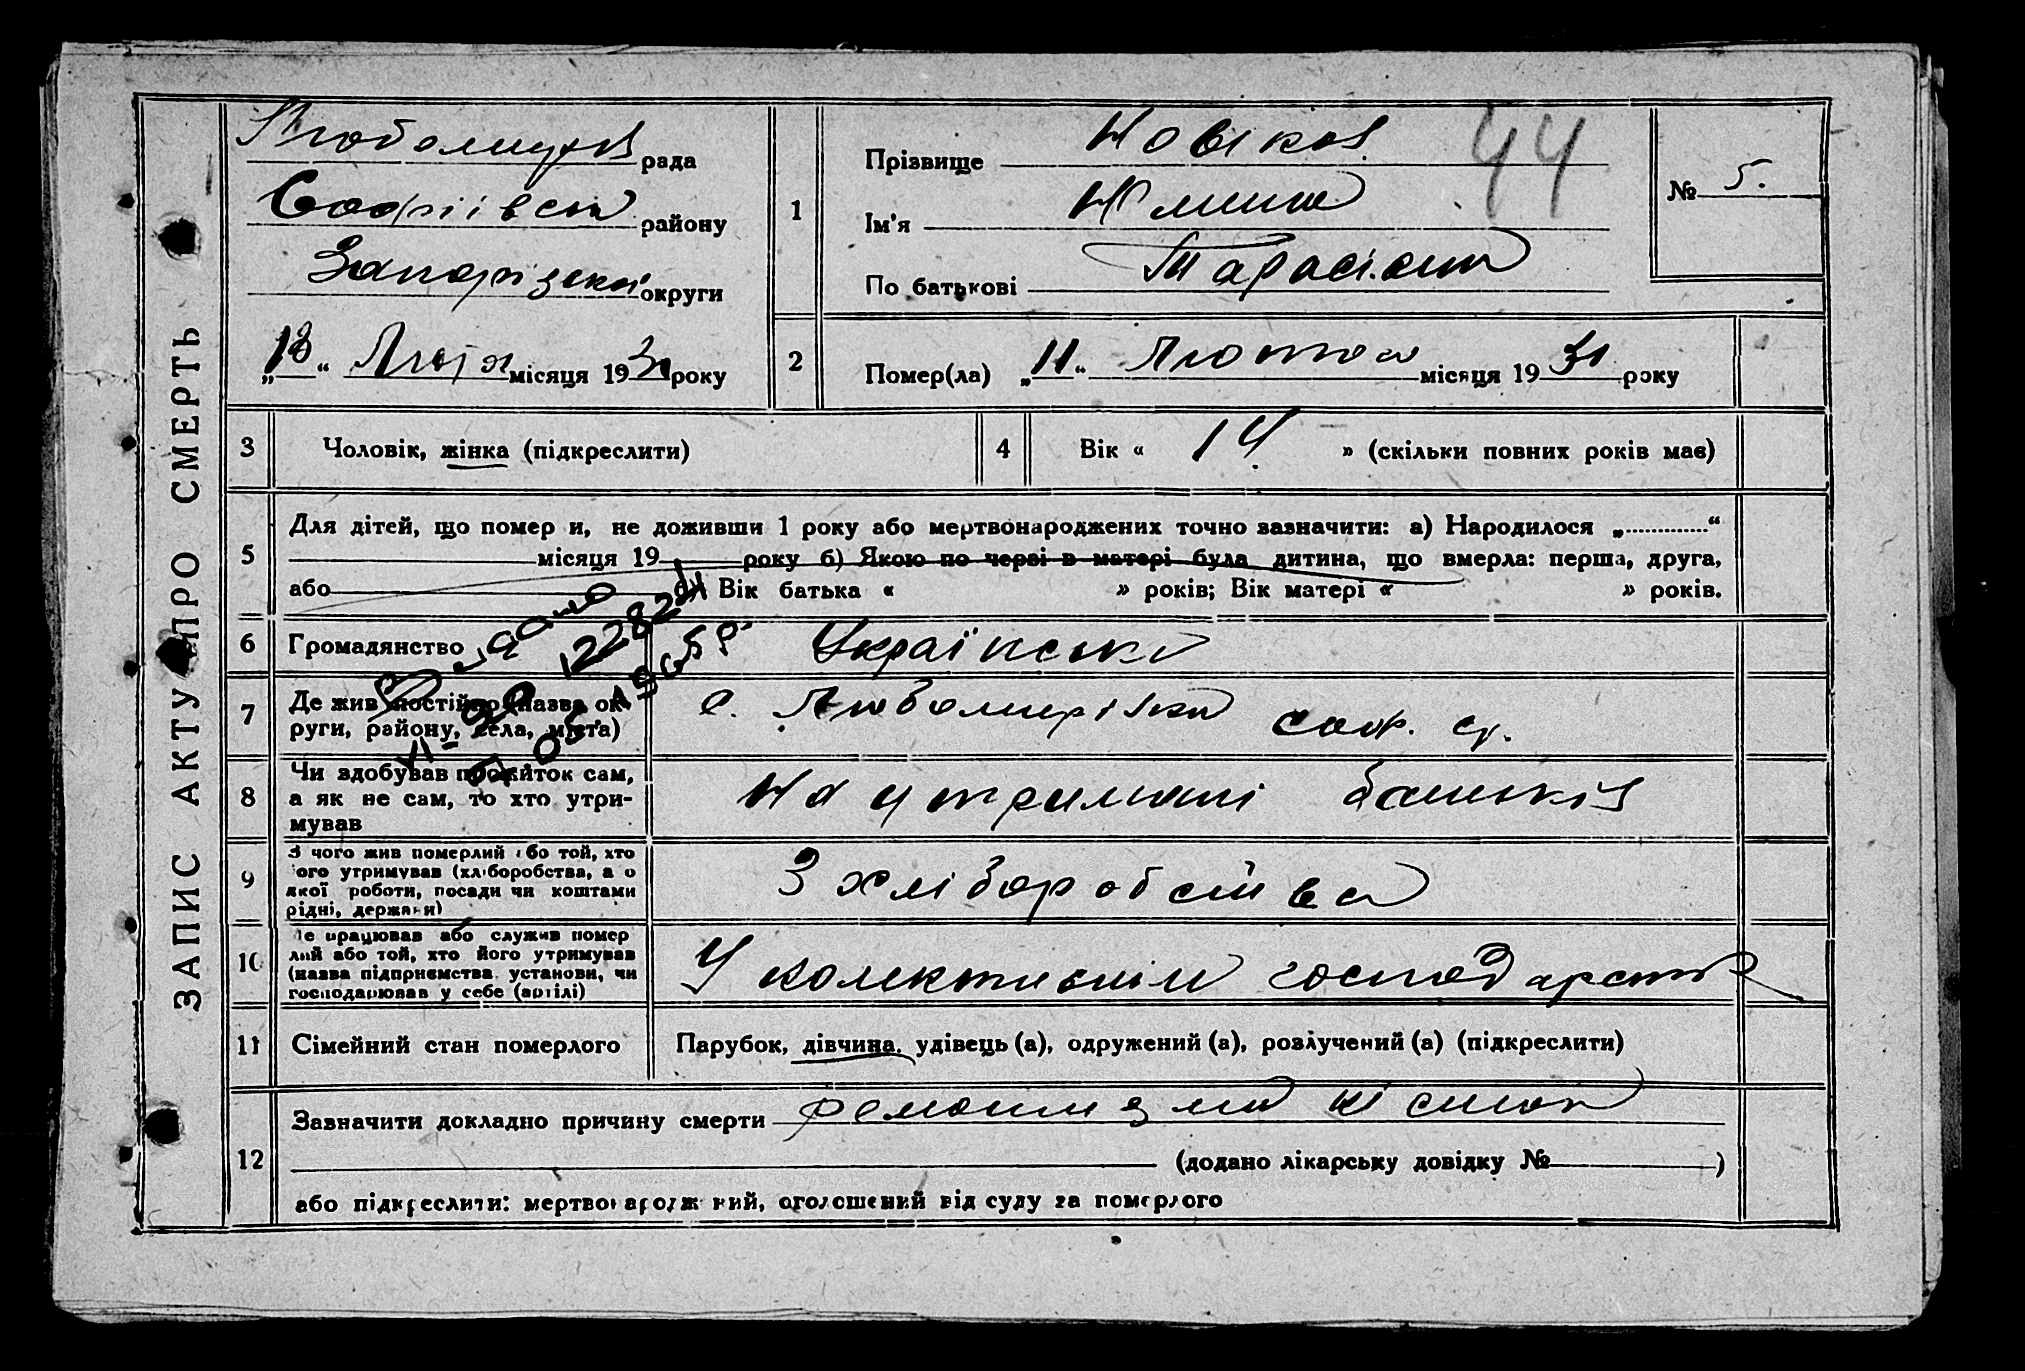 ЗАПИС АКТУ ПРО СМЕРТЬ
рада
Софіївськ району
Запорізької округи
„18“ місяця 193 року
1
Прізвище Новіков
Ім'я
По батькові Тарасівна
44
№ 5.
2
Помер(ла) „11“ Лютого місяця 19 року
3 Чоловік, жінка (підкреслити)
4 Вік « 14 » (скільки повних років має)
5 Для дітей, що помер и, не доживши 1 року або мертвонароджених точно зазначити: а) Народилося „ “
місяця 19 року б) Якою по черві в матері була дитина, що вмерла: перша, друга,
або Вік батька « » років; Вік матері « » років.
6 Громадянство Українське
7 Де жив постійно (назва ок-
руги, району, села, міста)
с. Любомирівка соф. р.
8 Чи здобував прожиток сам,
а як не сам, то хто утри-
мував
На утриманні батьків
9 З чого жив померлий або той, хто
його утримував (хліборобства, а о
якої роботи, посади чи коштами
рідні, держави)
З хліборобства
10 Де працював або служив помер
лий або той, хто його утримував
(назва підприємства, установи, чи
господарював у себе (артілі)
У колективнім господарстві
11 Сімейний стан померлого
Парубок, дівчина, удівець (а), одружений (а), розлучений (а) (підкреслити)
12 Зазначити докладно причину смерти
(додано лікарську довідку № )
або підкреслити: мертвонароджений, оголошений від суду за померлого